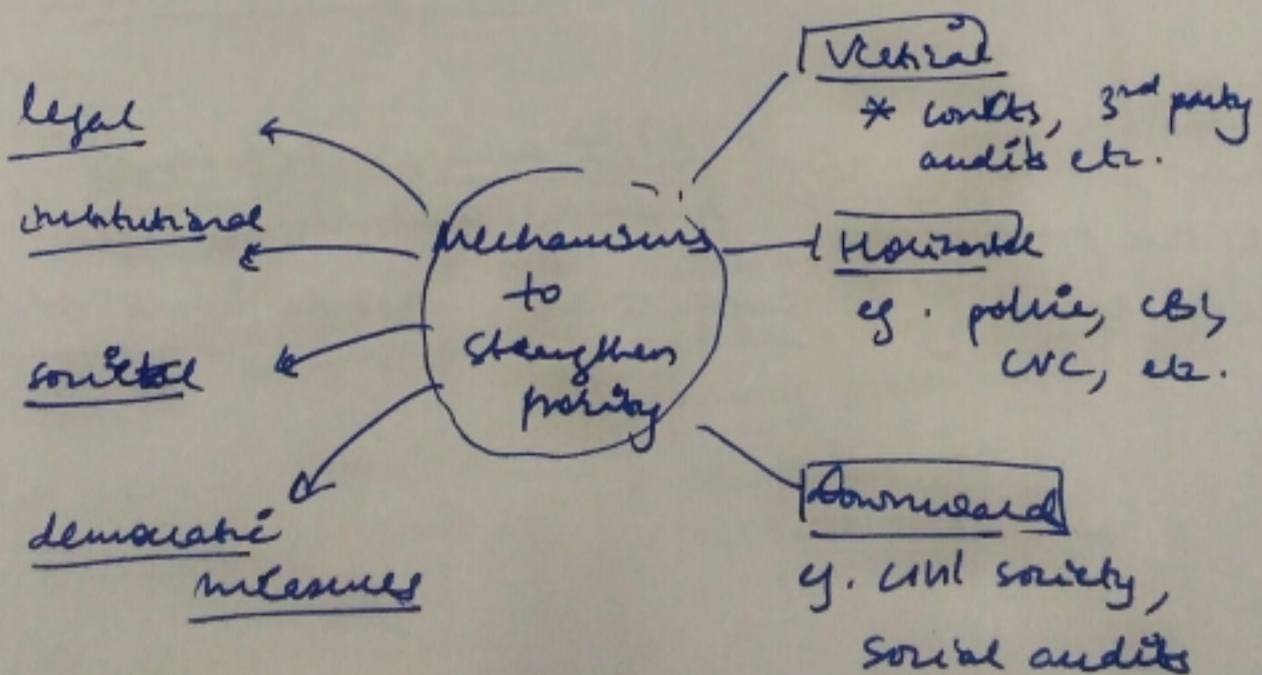 legal
institutional
societal
democratic
measures
Mechanisms
to
strengthen
probity
Vertical
* courts, 3rd party
audits etc.
Horizontal
eg. police, CBI,
CVC, etc.
Downward
eg. civil society,
social audits